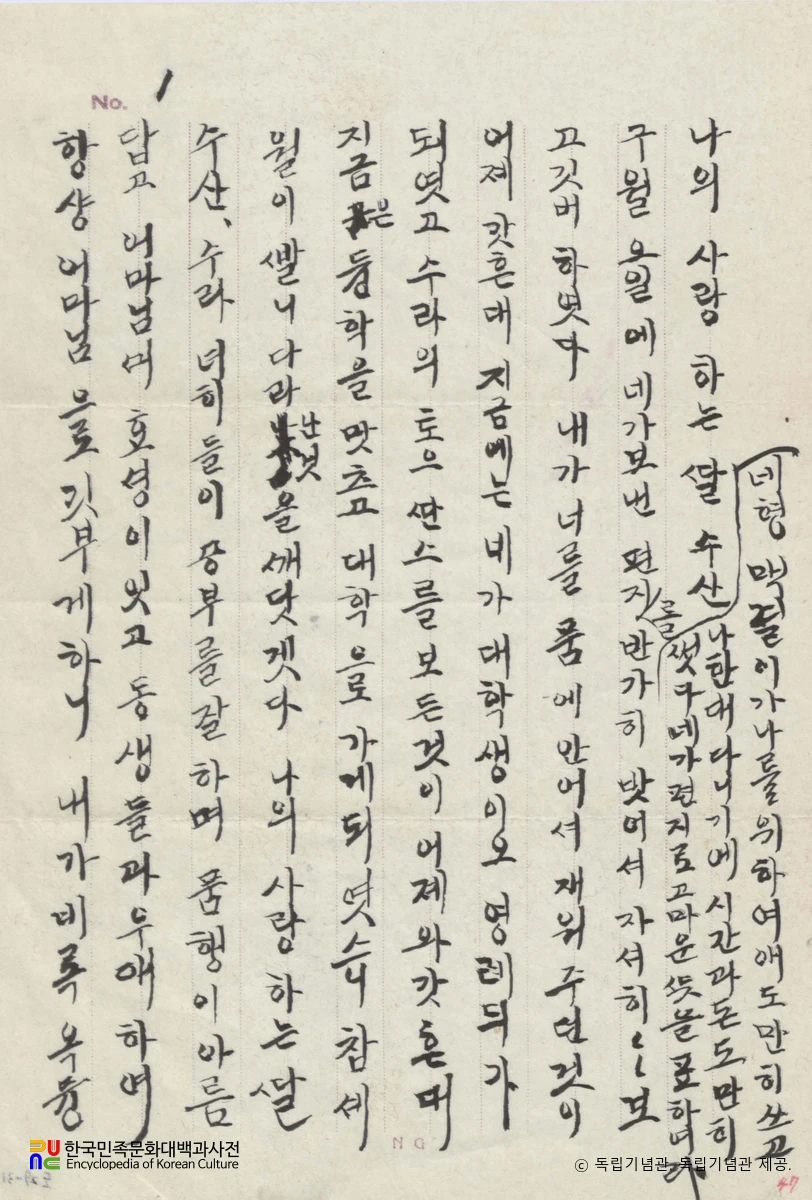 No. 1
네형 맷즐이가 나를 위하여 애도 만히 쓰고
나한대 다니기에 시간과 돈도 만히
썻다 네가 편지로 고마운 뜻을 표하여라
나의 사랑 하는 딸 수산
구월 오일에 네가 보낸 편지를 반가히 밧어셔 자셔히〻 보
고 깃버 하엿다 내가 너를 품에 안어셔 재워 주던 것이
어제 갓흔대 지금에는 네가 대학생이오 영레듸가
되엿고 수라의 토으 싼스를 보든것이 어제와 갓흔대
지금은 듕학을 맛츠고 대학으로 가게되엿스니 참 셰
월이 빨니 다라난것을 깨닷겟다 나의 사랑 하는 딸
수산、수라 너히들이 공부를 잘 하며 품행이 아름
답고 어마님께 효셩이 잇고 동생들과 우애 하여
항샹 어마님으로 깃부게하니 내가 비록 옥듕
한국민족문화대백과사전
Encyclopedia of Korean Culture
© 독립기념관, 독립기념관 제공.
47